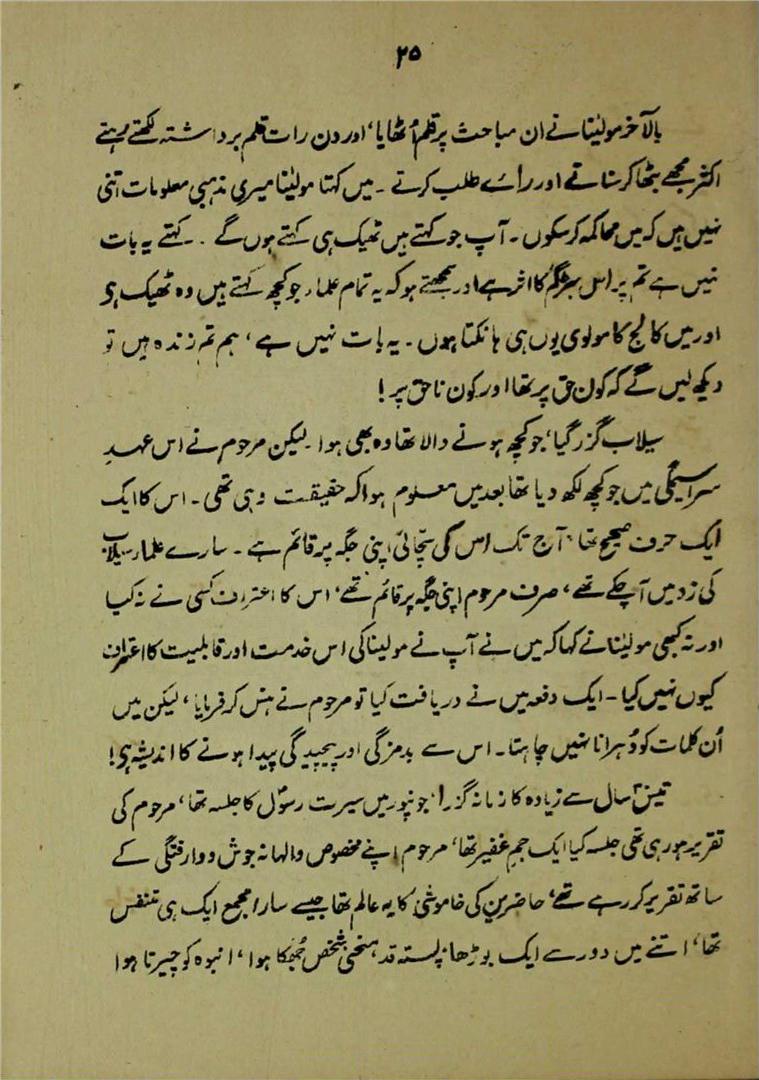 ۲۵
بالآخر مولٰینا نے ان مباحث پر قلم اُٹھایا، اور دن رات قلم برداشتہ لکھتے رہتے
اکثر مجھے بٹھا کر سناتے اور رائے طلب کرتے ۔ میں کہتا مولٰینا میری مذہبی معلومات اتنی
نہیں ہیں کہ میں محاکمہ کرسکوں ۔ آپ جو کہتے ہیں ٹھیک ہی کہتے ہوں گے . . کہتے یہ بات
نہیں ہے تم پر اس کا اثر ہے اور سمجھتے ہو کہ یہ تمام علماء جو کچھ کہتے ہیں وہ ٹھیک ہی
اور میں کالج کا مولوی یوں ہی ہانکتا ہوں ۔ یہ بات نہیں ہے، ہم تم زندہ ہیں تو
دیکھ لیں گے کہ کون حق پر تھا اور کون ناحق پر !
سیلاب گزر گیا، جو کچھ ہونے والا تھا وہ بھی ہوا ۔ لیکن مرحوم نے اس عہدِ
سراسیمگی میں جو کچھ لکھ دیا تھا بعد میں معلوم ہوا کہ حقیقت وہی تھی ۔ اس کا ایک
ایک حرف صحیح تھا، آج تک اس کی سچّائی اپنی جگہ پر قائم ہے ۔ سارے علماء سیلاب
کی زد میں آ چکے تھے، صرف مرحوم اپنی جگہ پر قائم تھے، اس کا اعتراف کسی نے نہ کیا
اور نہ کبھی مولٰینا نے کہا کہ میں نے آپ نے مولینا کی اس خدمت اور قابلیت کا اعتراف
کیوں نہیں کیا ۔ ایک دفعہ میں نے دریافت کیا تو مرحوم نے ہنس کر فرمایا، لیکن میں
اُن کلمات کو دُہرانا نہیں چاہتا ۔ اس سے بدمزگی اور پیچیدگی پیدا ہونے کا اندیشہ ہی !
تیس سال سے زیادہ کا زمانہ گزرا، جونپور میں سیرت رسولؐ کا جلسہ تھا، مرحوم کی
تقریر ہو رہی تھی جلسہ کیا ایک جمِ غفیر تھا، مرحوم اپنے مخصوص والہانہ جوش و وارفتگی کے
ساتھ تقریر کررہے تھے، حاضرین کی خاموشی کا یہ عالم تھا جیسے سارا مجمع ایک ہی تنفس
تھا، اتنے میں دور سے ایک بوڑھا، پستہ قد منحنی شخص جُھکا ہوا، انبوہ کو چیرتا ہوا